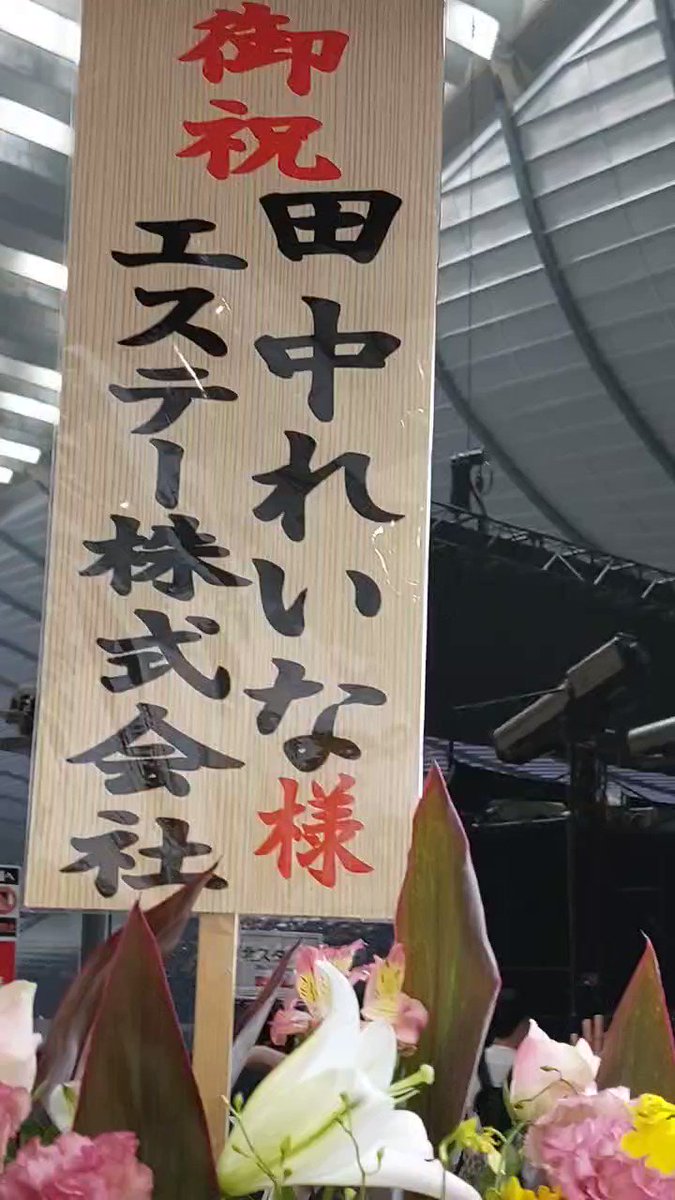 御祝
田中れいな様
エステー株式会社
北スタ